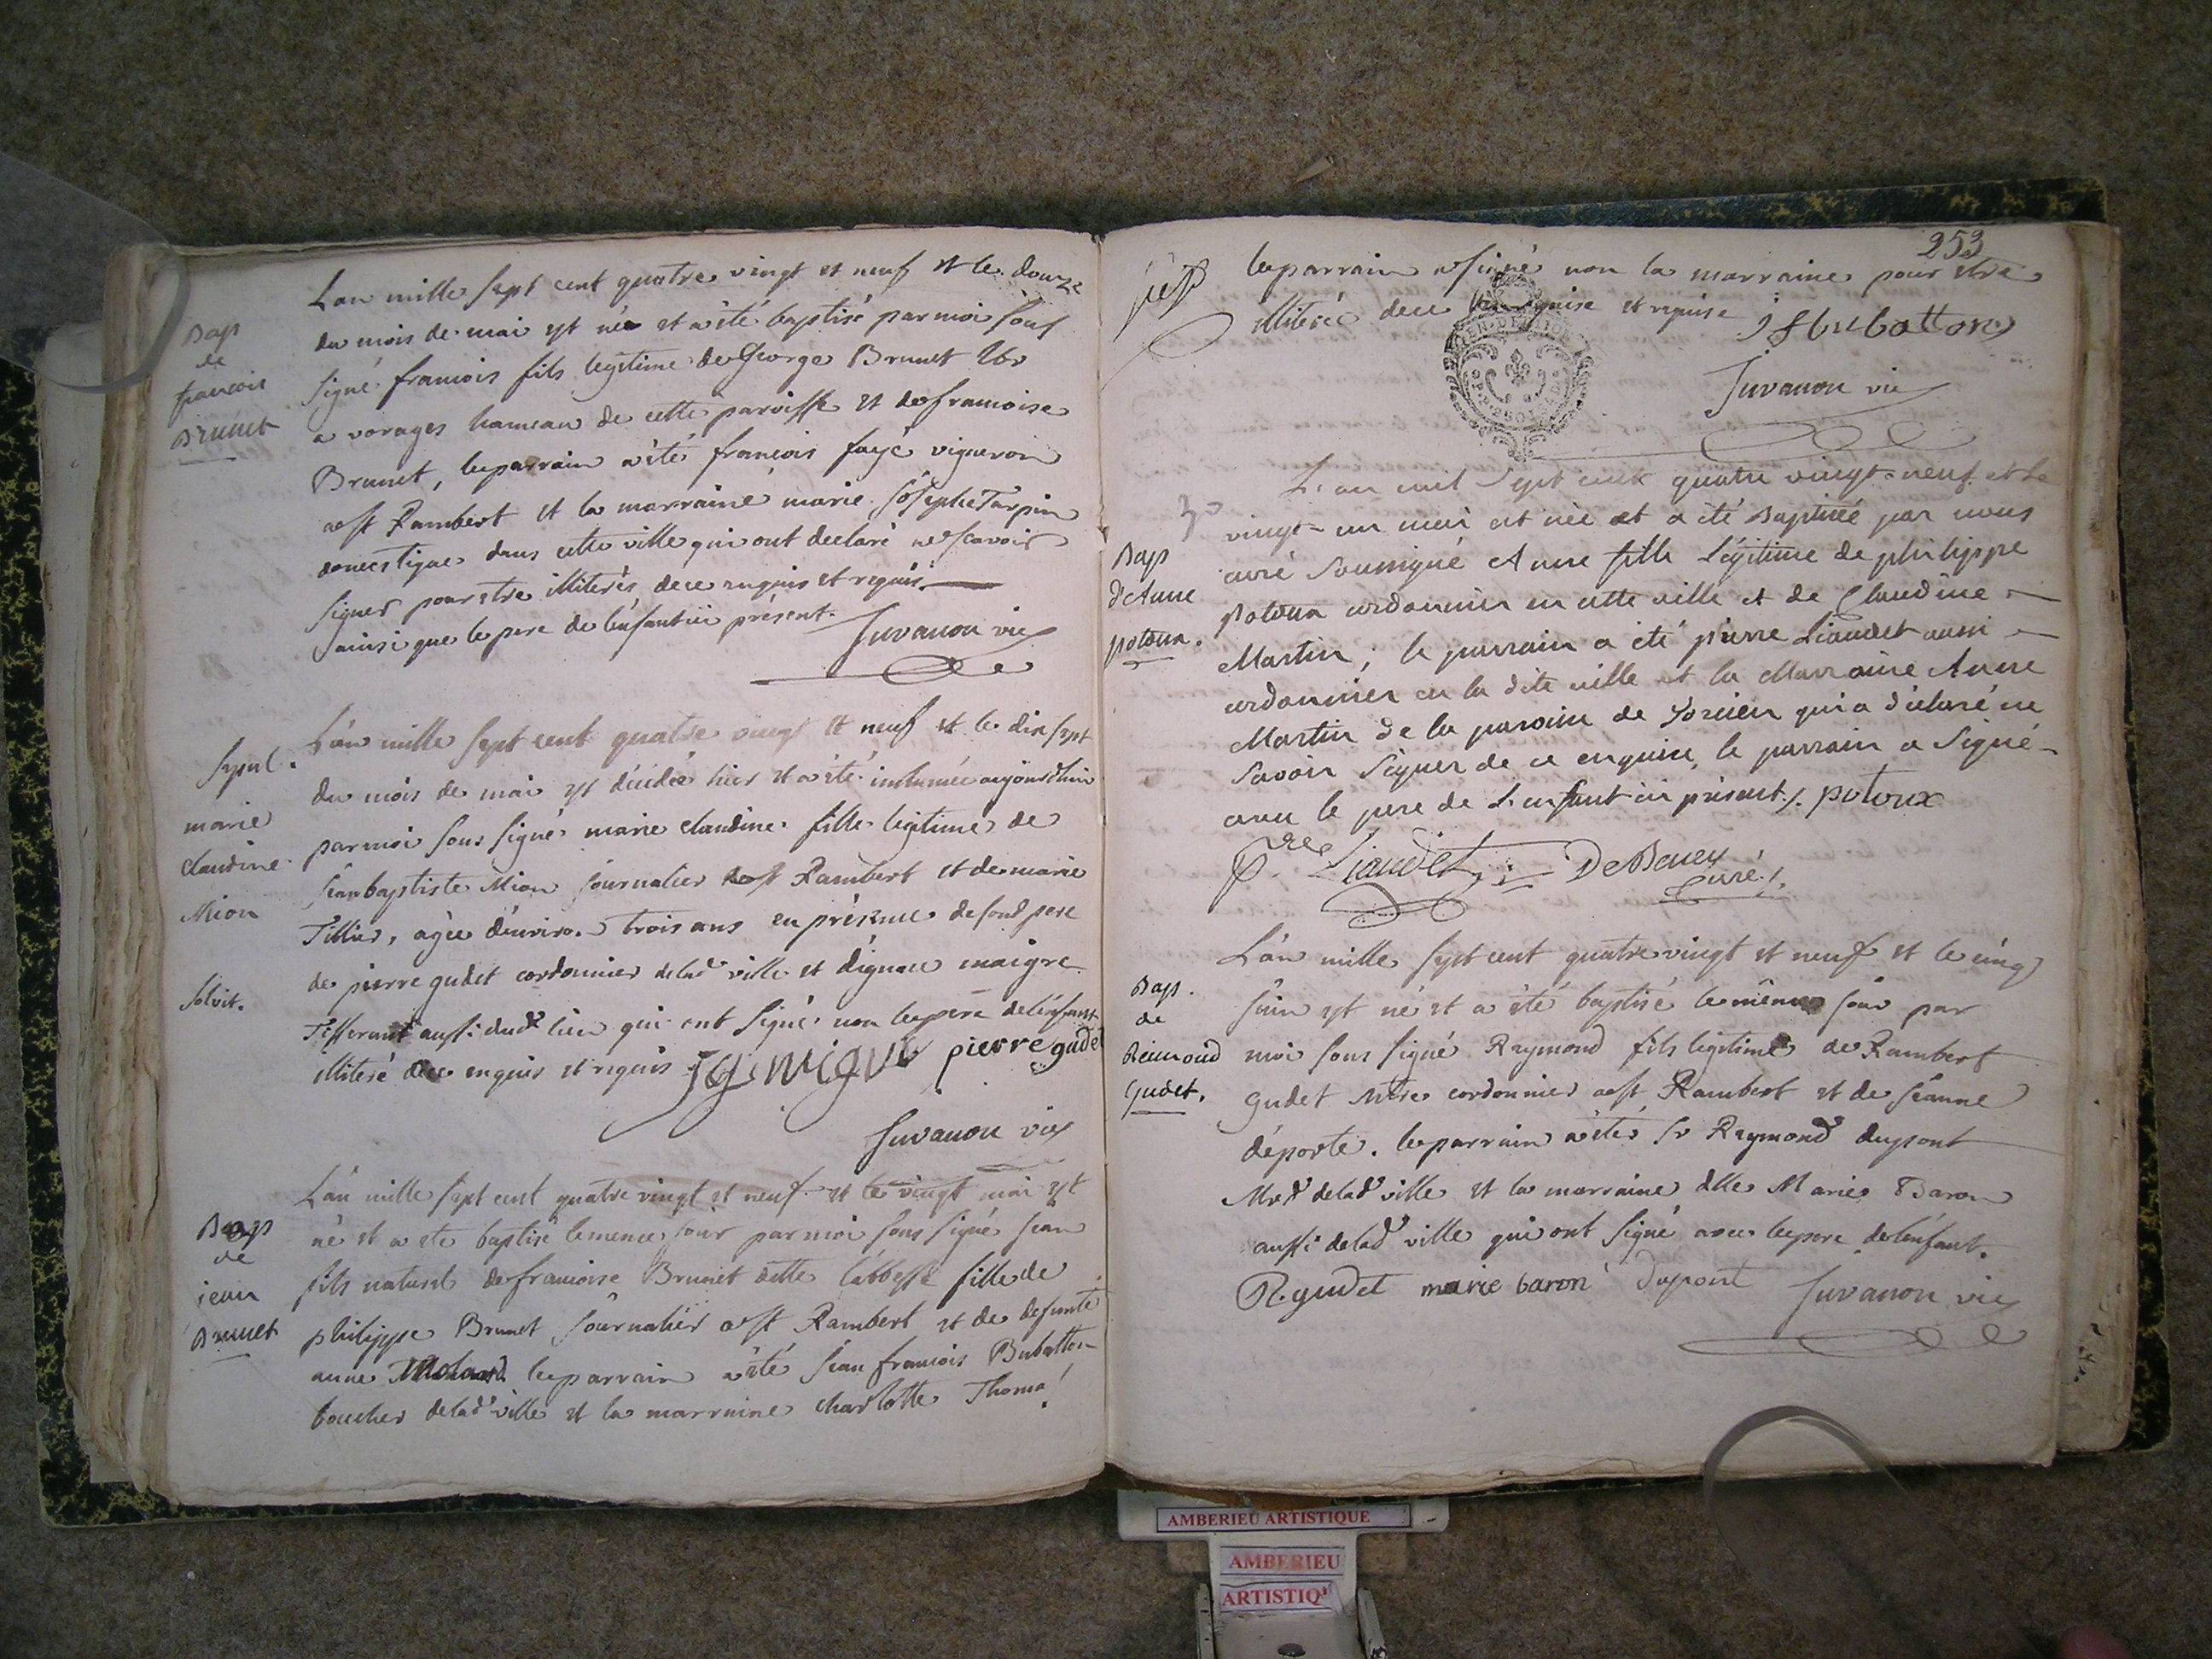 Bap
de
francois
Brunet
L'an mille sept cent quatre vingt et neuf et le douze
du mois de mai est né et a été baptisé par moi sous
signé francois fils legitime de George Brunet
a vorages hameau de cette paroisse et de francoise
Brunet, le parrain a été francois fayé vigneron
a st Rambert et la marraine marie josephe Tarpin
domestique dans cette ville qui ont declaré ne scavoir
signer pour etre illiterés de ce enquis et requis
ainsi que le pere de l'enfant ici présent. Juvanon vic
Sepul.
marie
claudine
Mion
solvit.
L'an mille sept cent quatre vingt et neuf et le dix sept
du mois de mai est décédée hier et a été inhumée aujourdhui
par moi sous signé marie claudine fille legitime de
jean baptiste Mion journalier a st Rambert et de marie
Tillier, agée d'environ trois ans en présence de sond pere
de pierre gudet cordonnier de lad ville et d'ignace maigre
Tisserant aussi dud lieu qui ont signé non le pere de l'enfant
illiteré de ce enquis et requis pierre gudet
Juvanon vic
Bap
de
jean
Brunet
L'an mille sept cent quatre vingt et neuf et le vingt mai est
né et a ete baptisé le meme jour par moi sous signé jean
fils naturel de francoise Brunet ditte l'abbesse fille de
philippe Brunet journalier a st Rambert et de defunte
anne Molard le parrain a été jean francois Bubatton
boucher de lad ville et la marraine charlotte Thoma
253
le parrain a signé non la marraine pour etre
illiterée de ce enquise et requise j f bubatton
Juvanon vic
Bap
d'Anne
potoux.
L'an mil sept cent quatre vingt-neuf et le
vingt-un mai est née et a été Baptisée par nous
curé soussigné Anne fille Légitime de philippe
Potoux cordonnier en cette ville et de Claudine
Martin; le parrain a été pierre Liaudet aussi
cordonnier en la dite ville et la Marraine Anne
Martin de la paroisse de Torcieu qui a déclaré ne
savoir signer de ce enquise, le parrain a signé
avec le pere de L'enfant ici présent ./. potoux
pre Liaudet DeBeney
Curé ./.
Bap.
de
Reimond
Gudet.
L'an mille sept cent quatre vingt et neuf et le cinq
juin est né et a été baptisé le même jour par
moi sous signé Raymond fils legitime de Rambert
Gudet Mtre cordonnier a st Rambert et de jeanne
déporte. le parrain a été sr Raymond dupont
Md de lad ville et la marraine dlle Marie Baron
aussi de lad ville qui ont signé avec le pere de l'enfant.
R. gudet marie baron dupont Juvanon vic
AMBERIEU ARTISTIQUE
AMBERIEU
ARTISTIQ